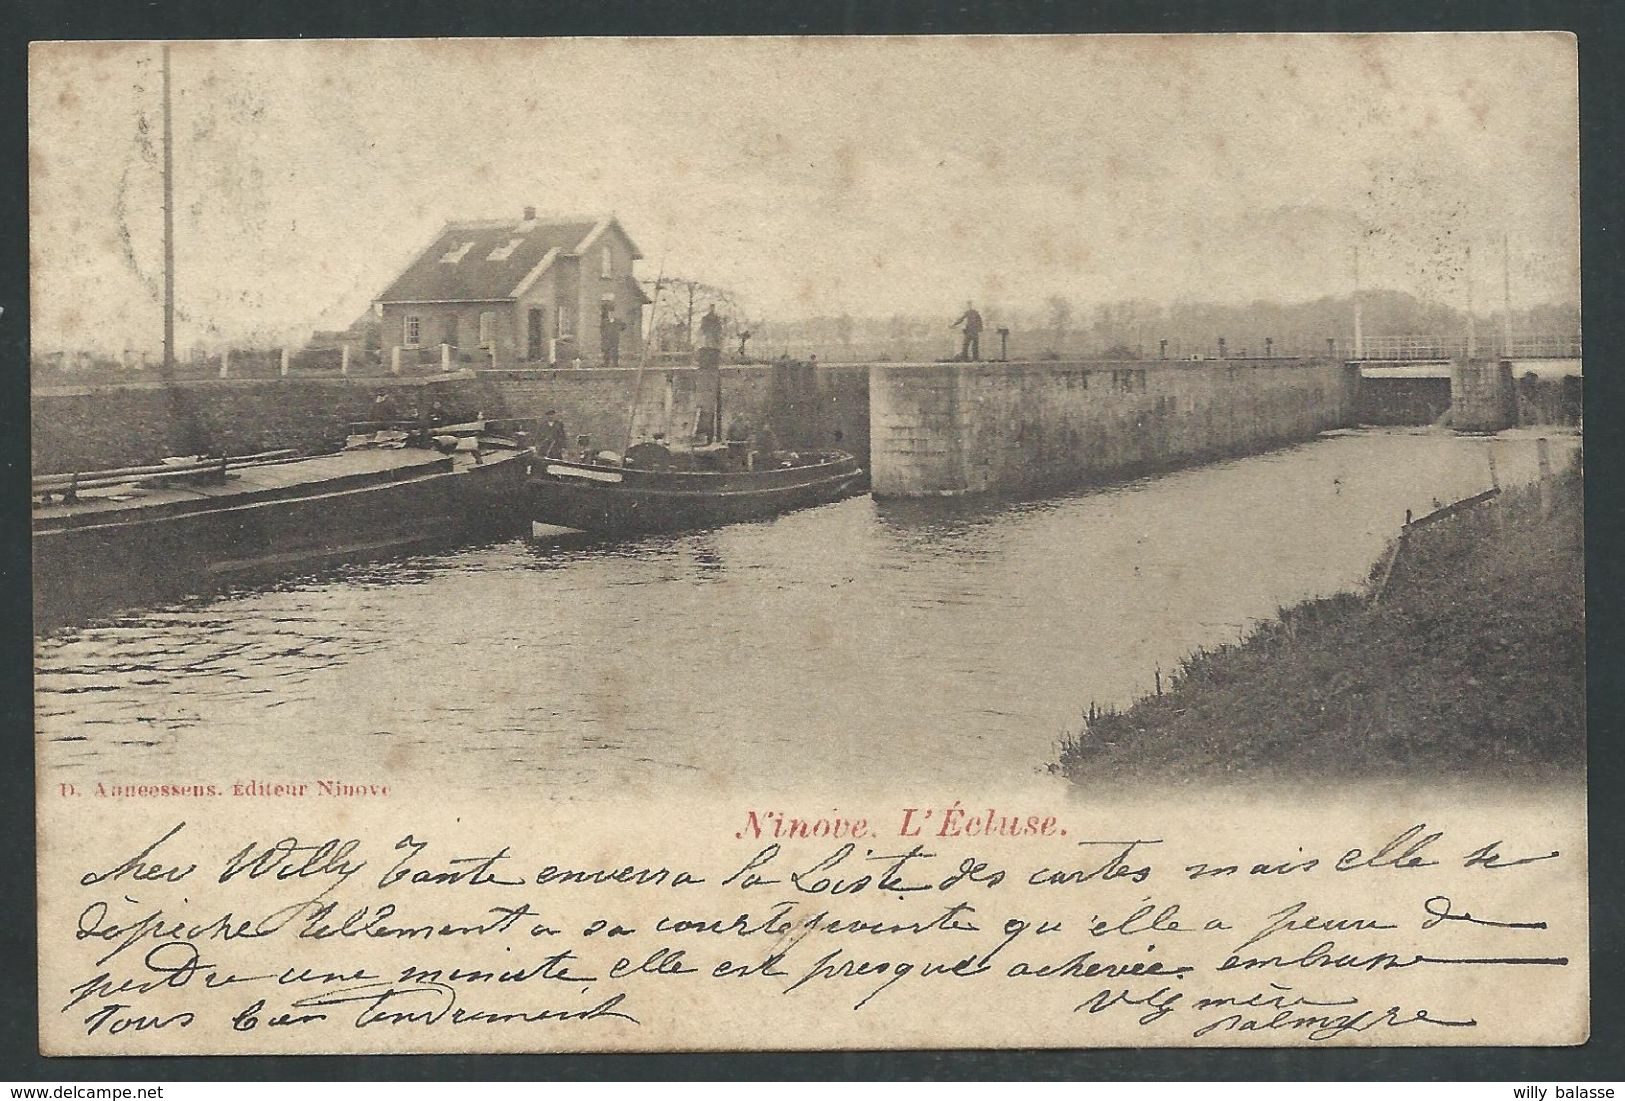 D. Anneessens. Éditeur Ninove
Ninove. L'Écluse.
cher Willy Tante enverra sa Liste des cartes mais elle se
dépeche tellement a sa courtepointe qu'elle a peur de
perdre une minute, elle est presque achevée. embrasse
tous bien tendrement
mère
Palmyre
willy balasse